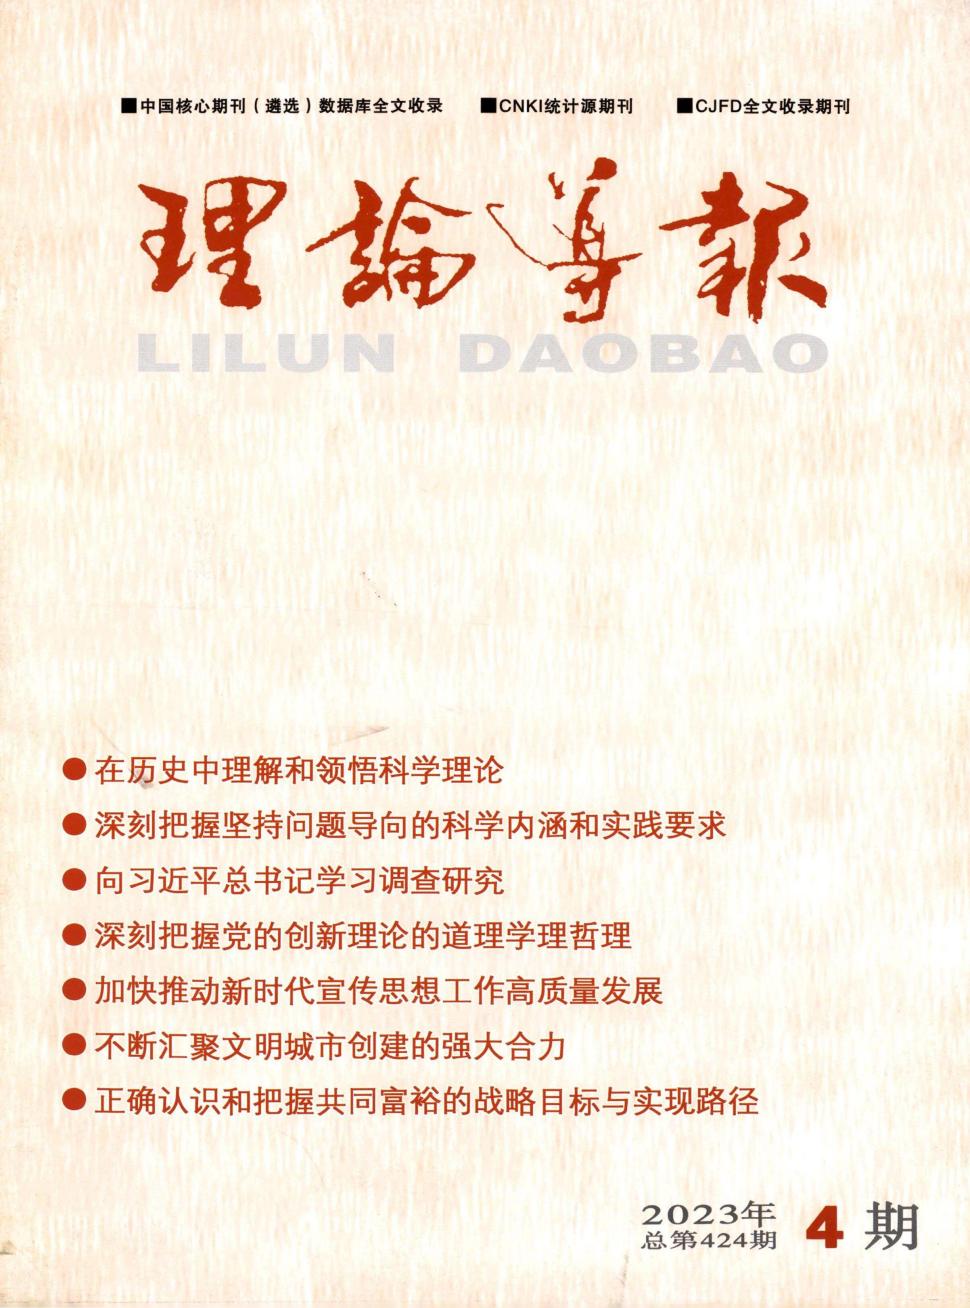 ■中国核心期刊（遴选）数据库全文收录 ■CNKI统计源期刊 ■CJFD全文收录期刊
理論导報
LILUN DAOBAO
●在历史中理解和领悟科学理论
●深刻把握坚持问题导向的科学内涵和实践要求
●向习近平总书记学习调查研究
●深刻把握党的创新理论的道理学理哲理
●加快推动新时代宣传思想工作高质量发展
●不断汇聚文明城市创建的强大合力
●正确认识和把握共同富裕的战略目标与实现路径
2023年
总第424期
4期